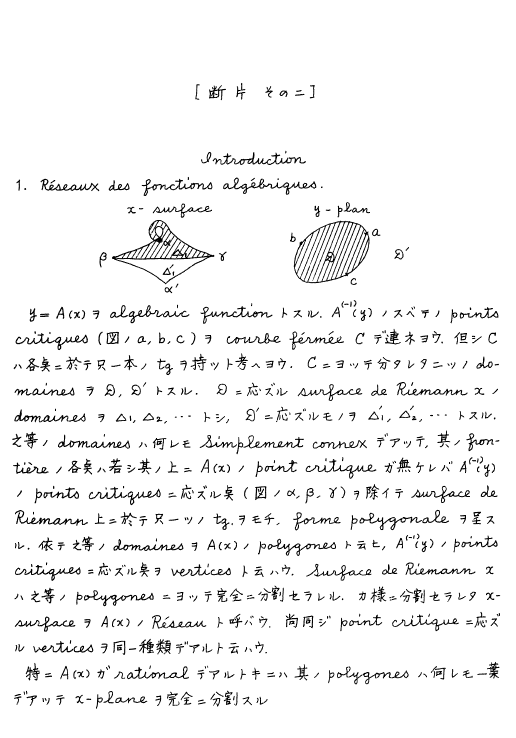 [断片 その二]
Introduction
1. Réseaux des fonctions algébriques.
x-surface y-plan
β α γ Δ₁ Δ′₁ α′ b a c D D′
y = A(x) ヲ algebraic function トスル. A⁽⁻¹⁾(y) ノスベテノ points
critiques (図ノ a, b, c) ヲ courbe férmée C デ連ネヨウ. 但シ C
ハ各点ニ於テ只一本ノ tg ヲ持ット考ヘヨウ. C ニヨッテ分タレタニッノ do-
maines ヲ D, D′ トスル. D ニ応ズル surface de Riemann x ノ
domaines ヲ Δ₁, Δ₂, ⋯ トシ, D′ ニ応ズルモノヲ Δ′₁, Δ′₂, ⋯ トスル.
之等ノ domaines ハ何レモ simplement connex デアッテ, 其ノ fron-
tière ノ各点ハ若シ其ノ上ニ A(x) ノ point critique ガ無ケレバ A⁽⁻¹⁾(y)
ノ points critiques ニ応ズル点 (図ノ α, β, γ) ヲ除イテ surface de
Riemann 上ニ於テ只一ツノ tg. ヲモチ, forme polygonale ヲ呈ス
ル. 依テ之等ノ domaines ヲ A(x) ノ polygones ト云ヒ, A⁽⁻¹⁾(y) ノ points
critiques ニ応ズル点ヲ vertices ト云ハウ. Surface de Riemann x
ハ之等ノ polygones ニヨッテ完全ニ分割セラレル. カ様ニ分割セラレタ x-
surface ヲ A(x) ノ Réseau ト呼バウ. 尚同ジ point critique ニ応ズ
ル vertices ヲ同一種類デアルト云ハウ.
特ニ A(x) ガ rational デアルトキニハ其ノ polygones ハ何レモ一葉
デアッテ x-plane ヲ完全ニ分割スル